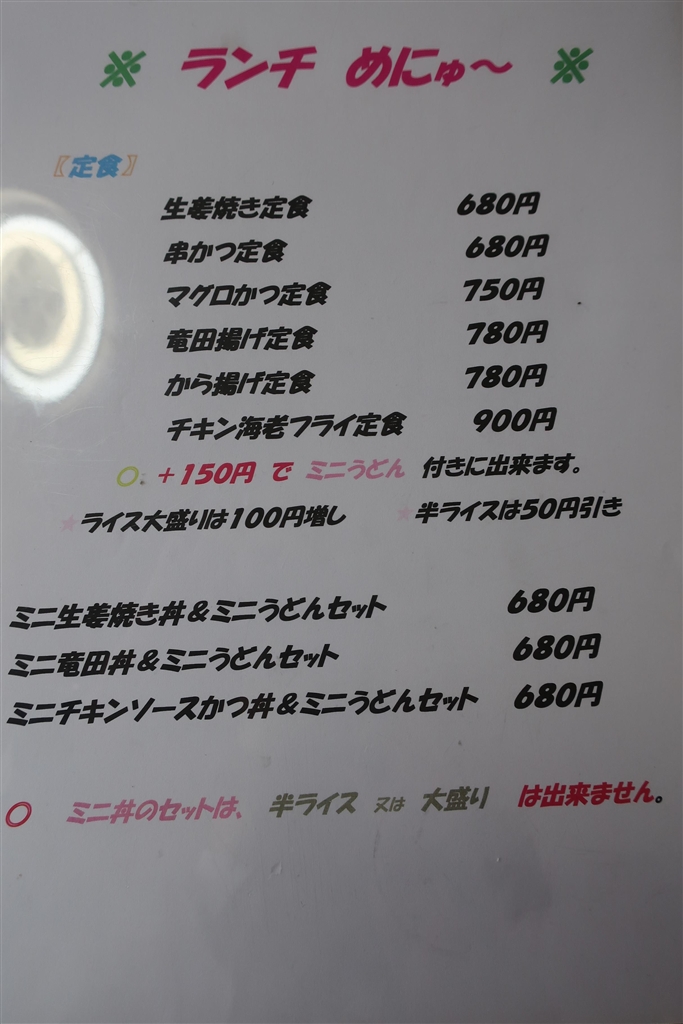 ※ ランチ めにゅ～ ※
〖定食〗
生姜焼き定食 680円
串かつ定食 680円
マグロかつ定食 750円
竜田揚げ定食 780円
から揚げ定食 780円
チキン海老フライ定食 900円
○ +150円 で ミニうどん 付きに出来ます。
★ライス大盛りは100円増し ★半ライスは50円引き
ミニ生姜焼き丼&ミニうどんセット 680円
ミニ竜田丼&ミニうどんセット 680円
ミニチキンソースかつ丼&ミニうどんセット 680円
○ ミニ丼のセットは、 半ライス 又は 大盛り は出来ません。